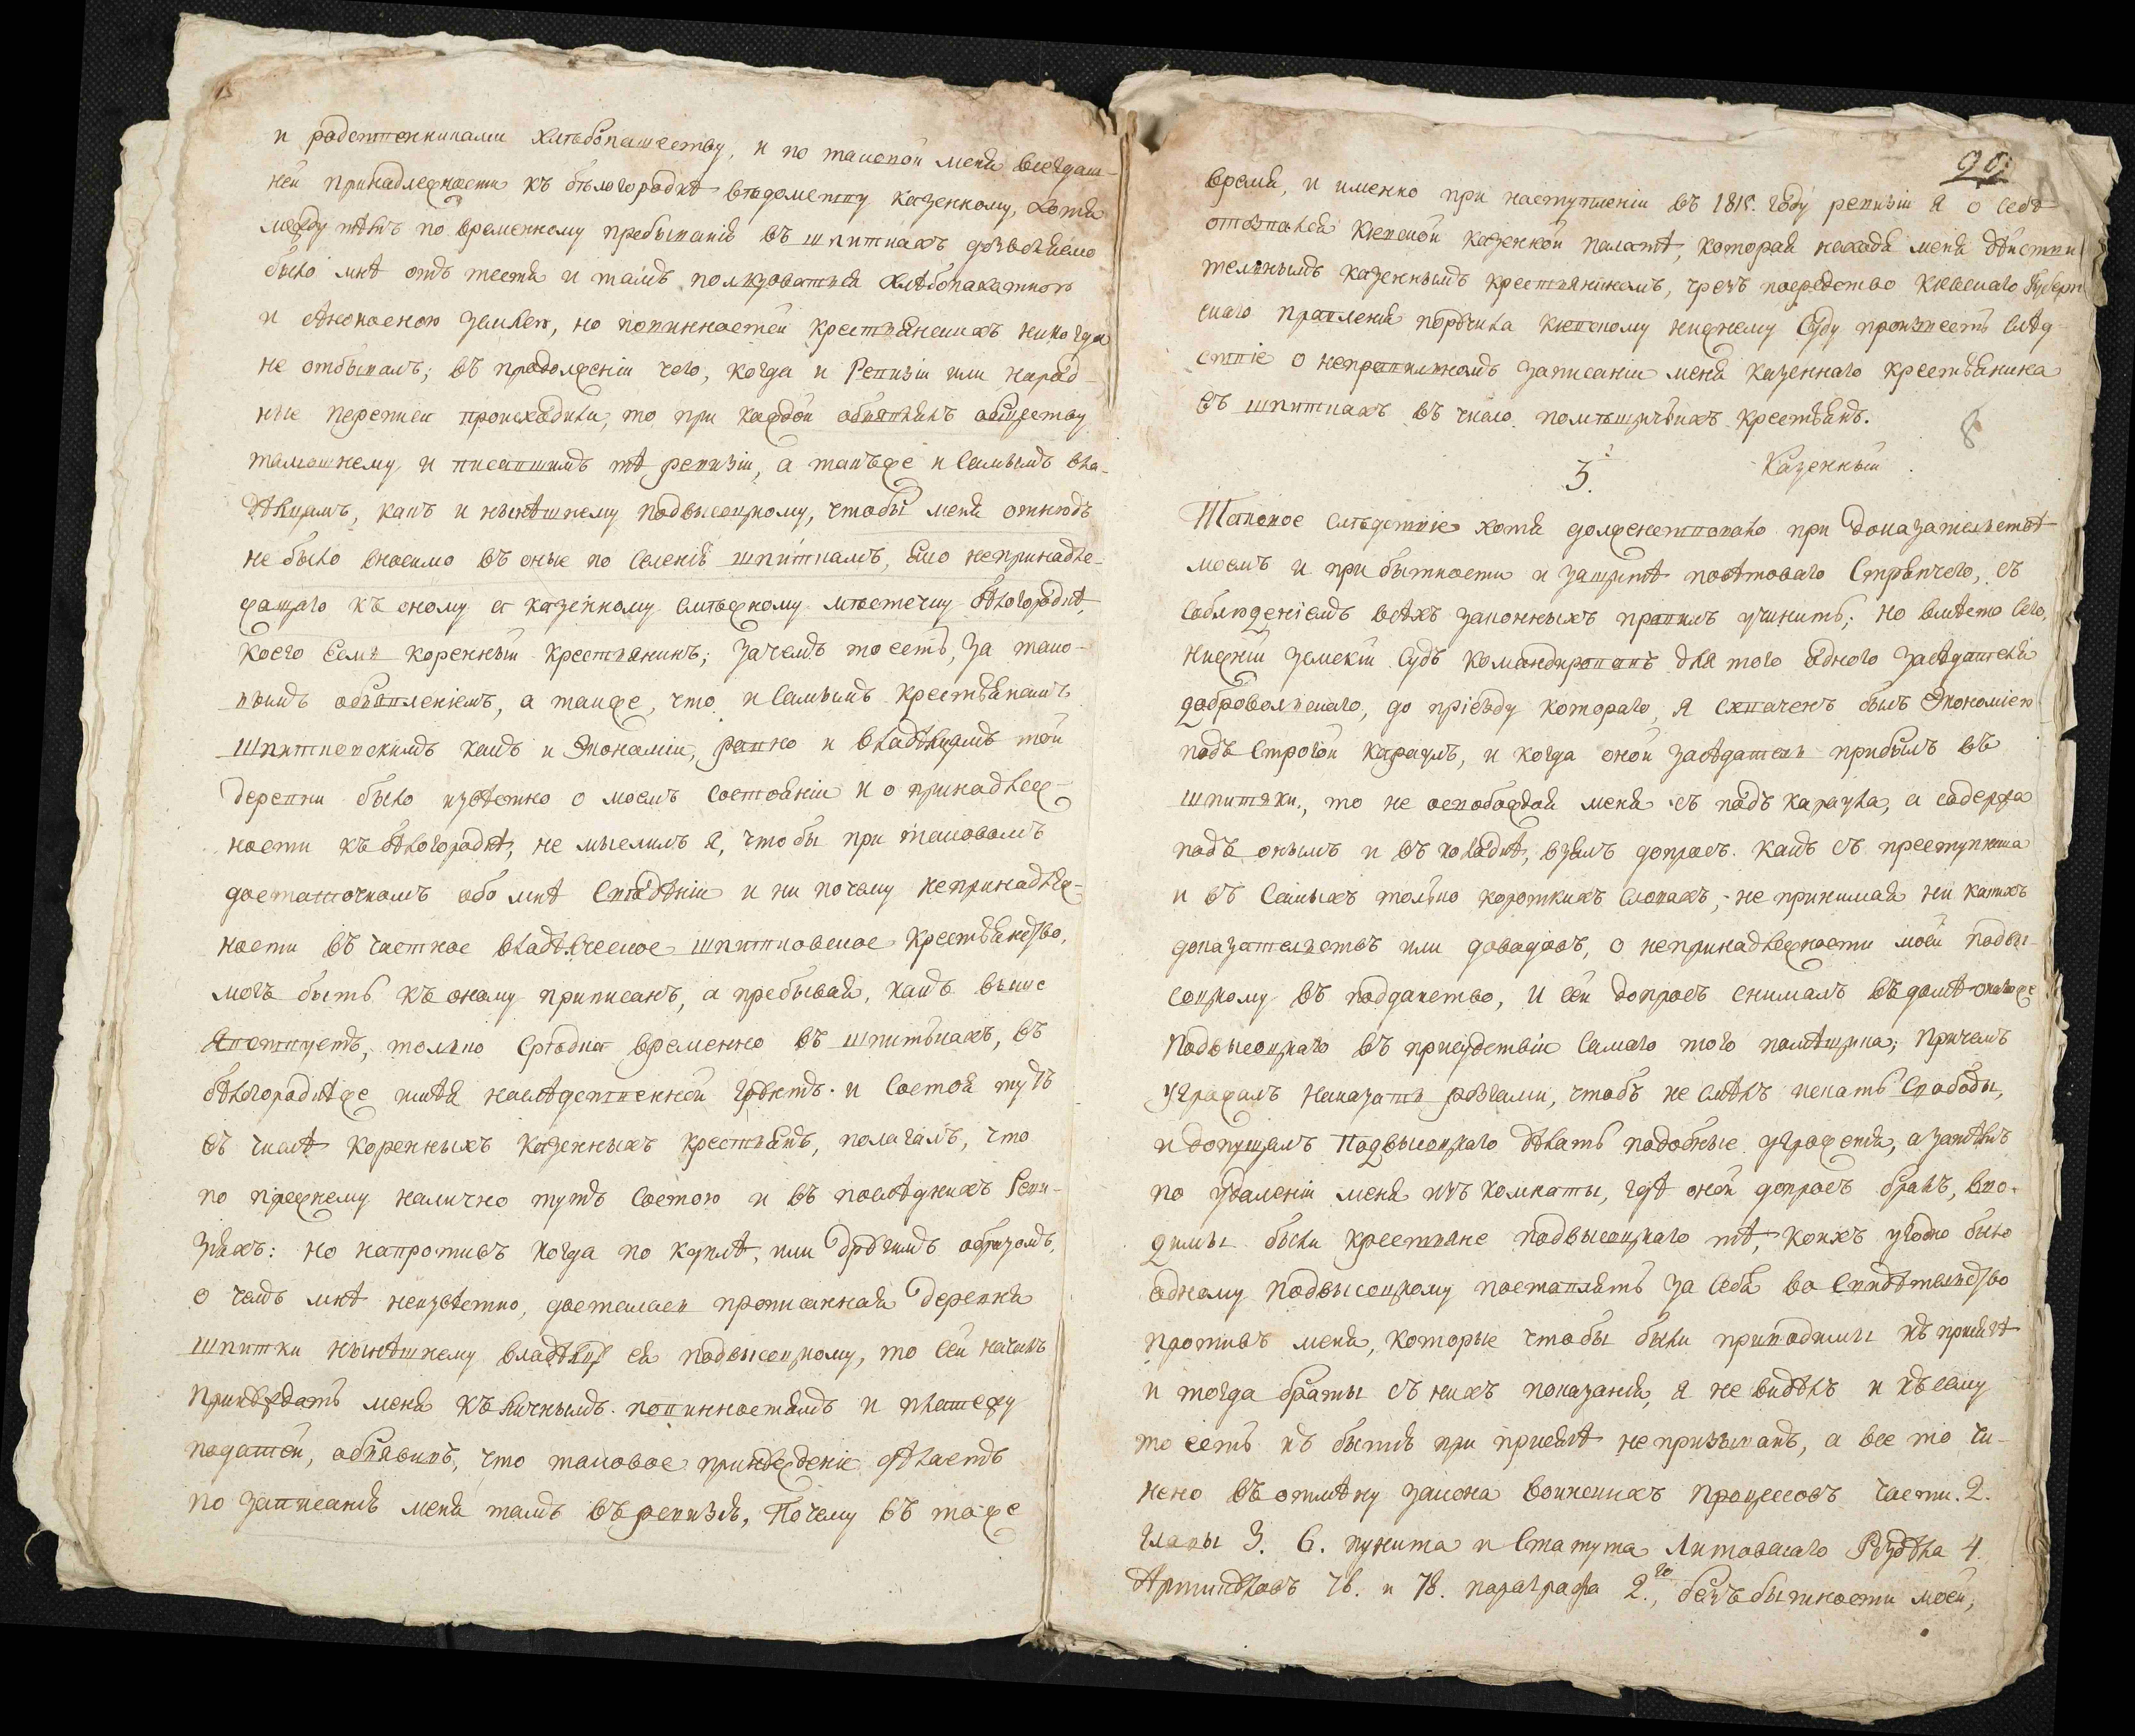 и родственниками хлѣбопашеству, и по таковой меня всегдаш-
ней принадлежности къ бѣлогородкѣ вѣдомству казенному, хотя
между тѣмъ по временному пребыванію въ шпиткахъ дозволяемо
было мнѣ отъ тестя и тамъ ползоватся хлѣбопахатною
и сѣнокосною землею, но повинностей крестьянскихъ никогда
не отбывалъ; въ продолженіи чего, когда и Ревизіи или народ-
ные переписи происходили, то при каждой объявлялъ обществу
тамошнему и писавшимъ тѣ ревизіи, а такъже и самымъ вла-
дѣлцамъ, какъ и нынѣшнему подвысоцкому, чтобы меня отнюдъ
не было вносимо въ оные по селенію шпиткамъ, яко непринадле-
жащаго къ оному а казенному смѣжному мѣстечку бѣлогородкѣ,
коего есмь коренный крестьянинъ; зачемъ то есть, за тако-
вымъ объявленіемъ, а также, что и самымъ крестьянамъ
шпитковскимъ какъ и Экономіи, равно и владѣлцамъ той
деревни было извѣстно о моемъ состояніи и о принадлеж-
ности къ бѣлогородкѣ, не мыслилъ я, чтобы при таковомъ
достаточномъ обо мнѣ свѣдѣніи и ни почему непринадлеж-
ности въ частное владѣлческое шпитковское крестьянство,
могъ быть къ оному приписанъ, а пребывая, какъ выше
явствуетъ, только временно въ шпиткахъ, въ
бѣлогородкѣже имѣя наслѣдственной грунтъ и состоя тутъ
въ числѣ коренныхъ казенныхъ крестьянъ, полагалъ, что
по прежнему налично тутъ состою и въ послѣднихъ Реви-
зіяхъ: но напротивъ когда по куплѣ, или другимъ образомъ,
о чемъ мнѣ неизвѣстно, досталась прописанная деревня
шпитки нынѣшнему владѣлцу ея подвысоцкому, то сей началъ
принуждать меня къ личнымъ повинностямъ и платежу
податей, объявивъ, что таковое принужденіе дѣлаетъ
по записанію меня тамъ въ ревизію, Почему въ тоже
90
время, и именно при наступленіи въ 1815. году ревизіи я о себѣ
отозвался Кіевской казенной палатѣ, которая находя меня дѣйстви
телнымъ казеннымъ крестьяниномъ, чрезъ посредство Кіевскаго Губерн
скаго правленія поручила Кіевскому нижнему суду произвесть слѣд-
ствіе о неправилномъ записаніи меня казеннаго крестьянина
въ шпиткахъ въ число помѣщичьихъ крестьянъ.
8
3. Казенный
Таковое слѣдствіе хотя долженствовало при доказателствѣ
моемъ и при бытности и защитѣ повѣтоваго Стряпчего, съ
соблюденіемъ всѣхъ законныхъ правилъ учинить; но вмѣсто сего,
нижній земскій судъ командировалъ для того одного засѣдателя
добровольскаго, до пріезду котораго, я схваченъ былъ Экономіею
подъ строгой караулъ, и когда оной засѣдатель прибылъ въ
шпитки, то не освобождая меня съ подъ караула, а содержа
подъ онымъ и въ колодкѣ, взялъ допросъ какъ съ преступника
и въ самыхъ только короткихъ словахъ, не принимая ни какихъ
доказателствъ или доводовъ, о непринадлежности моей подвы-
соцкому въ подданство, и сей допросъ снималъ въ домѣ онагоже
подвысоцкаго въ присудствіи самаго того помѣщика; Причемъ
угрожалъ наказать розгами, чтобъ не смѣлъ искать свободы,
и допущалъ Подвысоцкаго дѣлать подобные угроженія, а затѣмъ
по удаленіи меня изъ комнаты, гдѣ оной допросъ бралъ, вво-
димы были крестьяне подвысоцкаго тѣ, коихъ угодно было
одному подвысоцкому поставлять за себя во свидѣтельство
противъ меня, которые чтобы были приводимы къ присягѣ
и тогда браты съ нихъ показанія, я не видѣлъ и къ сему
то есть къ бытію при присягѣ непризыванъ, а все то чи-
нено въ отмѣну закона воинскихъ процессовъ части. 2.
главы 3. 6. пункта и Статута Литовскаго Роздѣла 4.
Артикѣловъ 76. и 78. параграфа 2.го, безъ бытности моей,